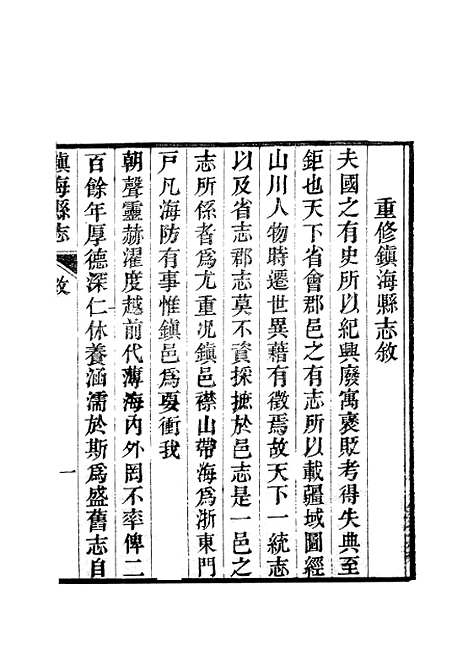 重修鎮海縣志敘
夫國之有史所以紀興廢寓褒貶考得失典至
鉅也天下省會郡邑之有志所以載疆域圖經
山川人物時遷世異藉有徵焉故天下一統志
以及省志郡志莫不資採摭於邑志是一邑之
志所係者爲尤重况鎮邑襟山帶海爲浙東門
戸凡海防有事惟鎮邑爲要衝我
朝聲靈赫濯度越前代薄海內外罔不率俾二
百餘年厚德深仁休養涵濡於斯爲盛舊志自
鎮海縣志
敘
一